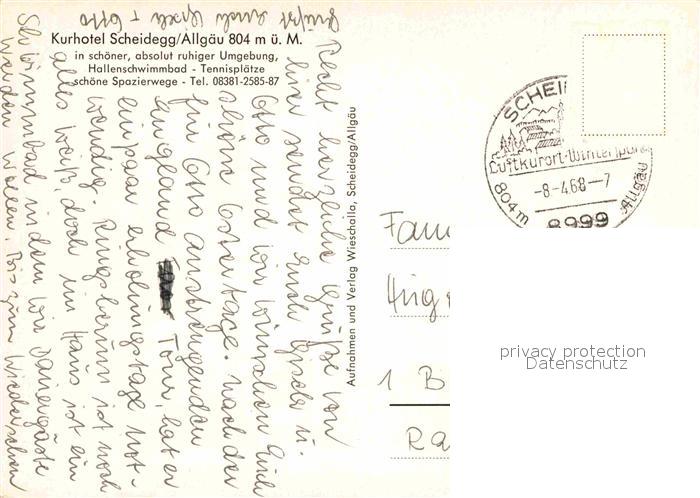 Kurhotel Scheidegg/Allgäu 804 m ü. M.
in schöner, absolut ruhiger Umgebung,
Hallenschwimmbad - Tennisplätze
schöne Spazierwege - Tel. 08381-2585-87
Recht herzliche Grüße von
hier sendet Euch Gisela u.
Otto und wir wünschen Euch
schöne Ostertage. Nach der
für Otto anstrengenden
England Tour, hat er
ein paar erholungstage not-
wendig. Ringsherum ist noch
alles weiß, doch im Haus ist ein
Schwimmbad in dem wir Dauergäste
werden wollen. Bis zum Wiedersehen
grüßt Euch Gisela + Otto
Aufnahmen und Verlag Wieschalla, Scheidegg/Allgäu
SCHEI
Luftkurort-Wintersport
-8-4.68-7
804m
Allgäu
8999
Fam
1 B
privacy protection
Datenschutz